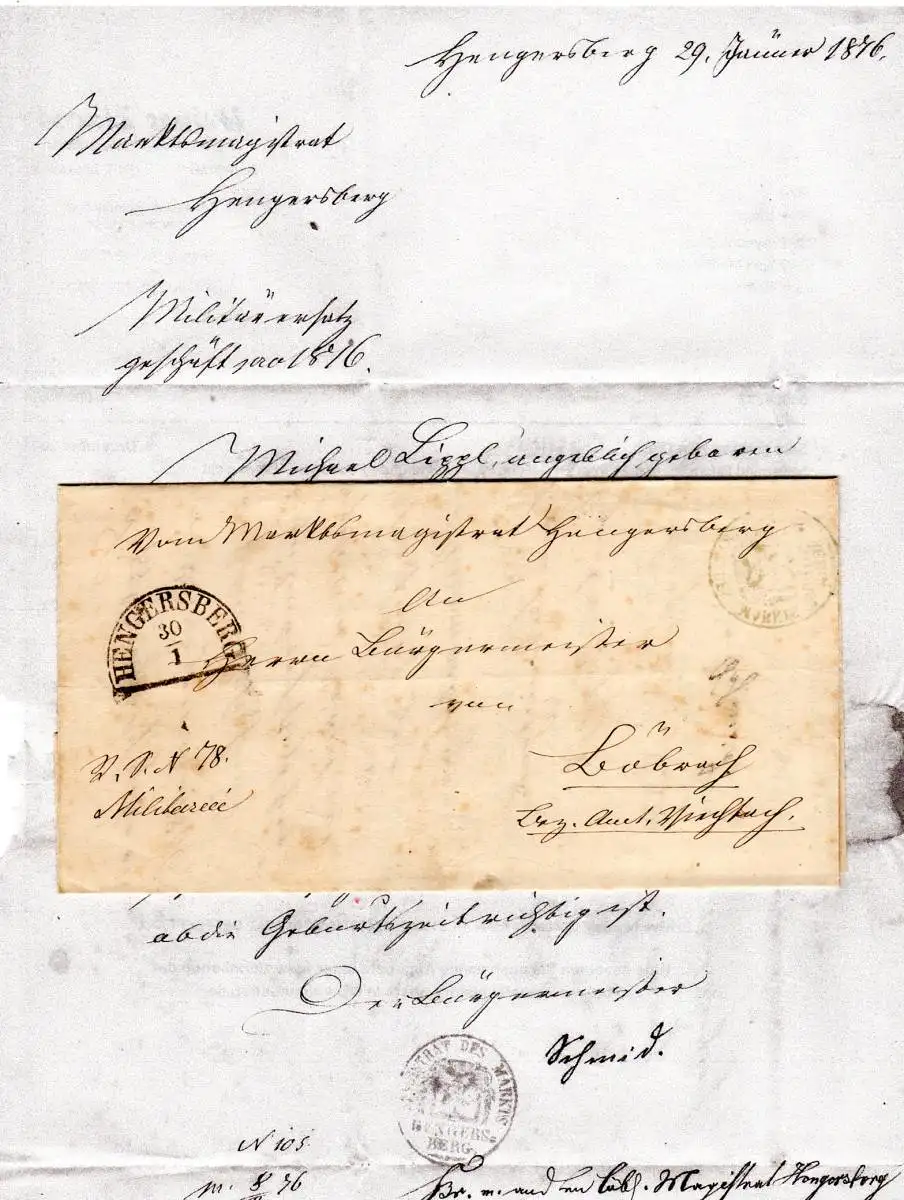 Hengersberg 29. Jänner 1876.
Marktsmagistrat
Hengersberg
Militärersatz
geschäft pro 1876.
Michael Lippl, angeblich geboren
Vom Marktsmagistrat Hengersberg
An
HENGERSBERG
30
1
Herrn Bürgermeister
von
Böbrach
Bez. Amt. Viechtach.
R. S. N 78.
Militaria
ob die Geburtszeit richtig ist.
Der Bürgermeister
Schmid.
MAGISTRAT DES MARKTS
HENGERS-
BERG
N 105.
Br. m. an den löbl. Magistrat Hengersberg